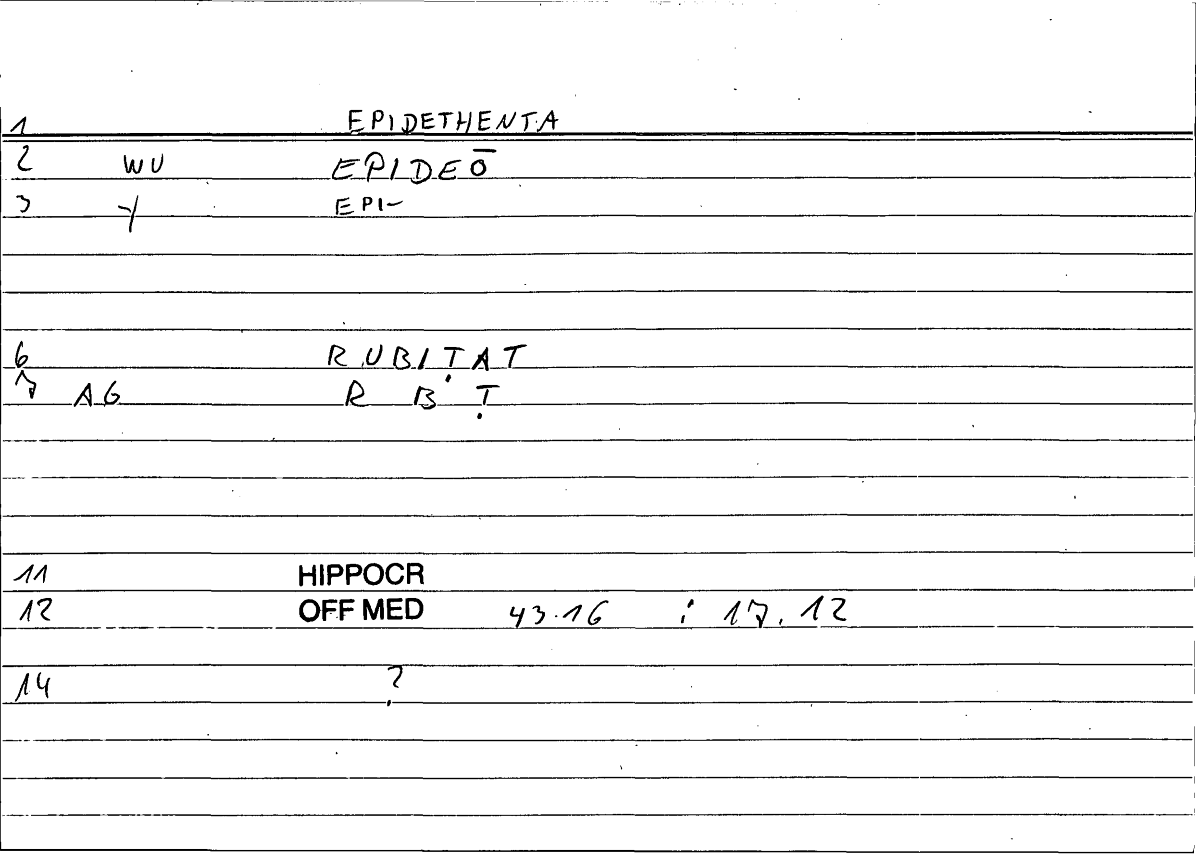 1 EPIDETHENTA
2 WU EPIDEŌ
3 EPI-
6 RUBIṬAT
7 AG R B Ṭ
11 HIPPOCR
12 OFF MED 43.16 : 17.12
14 ?